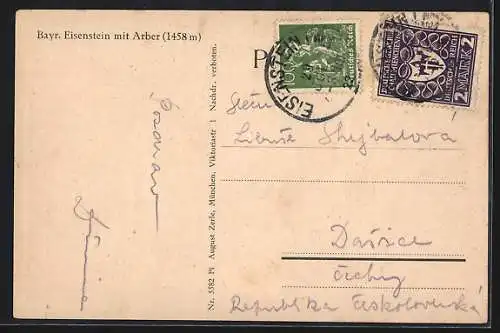 Bayr. Eisenstein mit Arber (1458 m)
P
EISENSTEIN
Deutsches Reich
2 MARK 2
Pozdrav
Libuše Shejbalova
Dašice
Čechy
Republika Československá
Nr. 5582 Pl August Zerle, München, Viktoriastr 1 Nachdr. verboten.